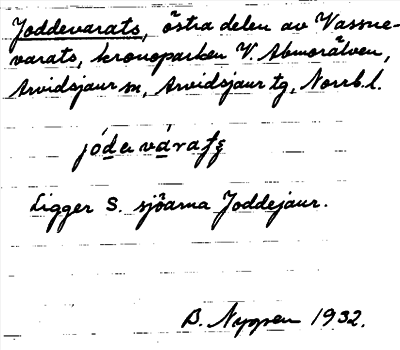 Joddevarats, östra delen av Vassne-
varats, kronoparken V. Abmorälven,
Arvidsjaur sn, Arvidsjaur tg, Norrb.l.
Ligger S. sjöarna Joddejaur.
B. Nygren 1932.